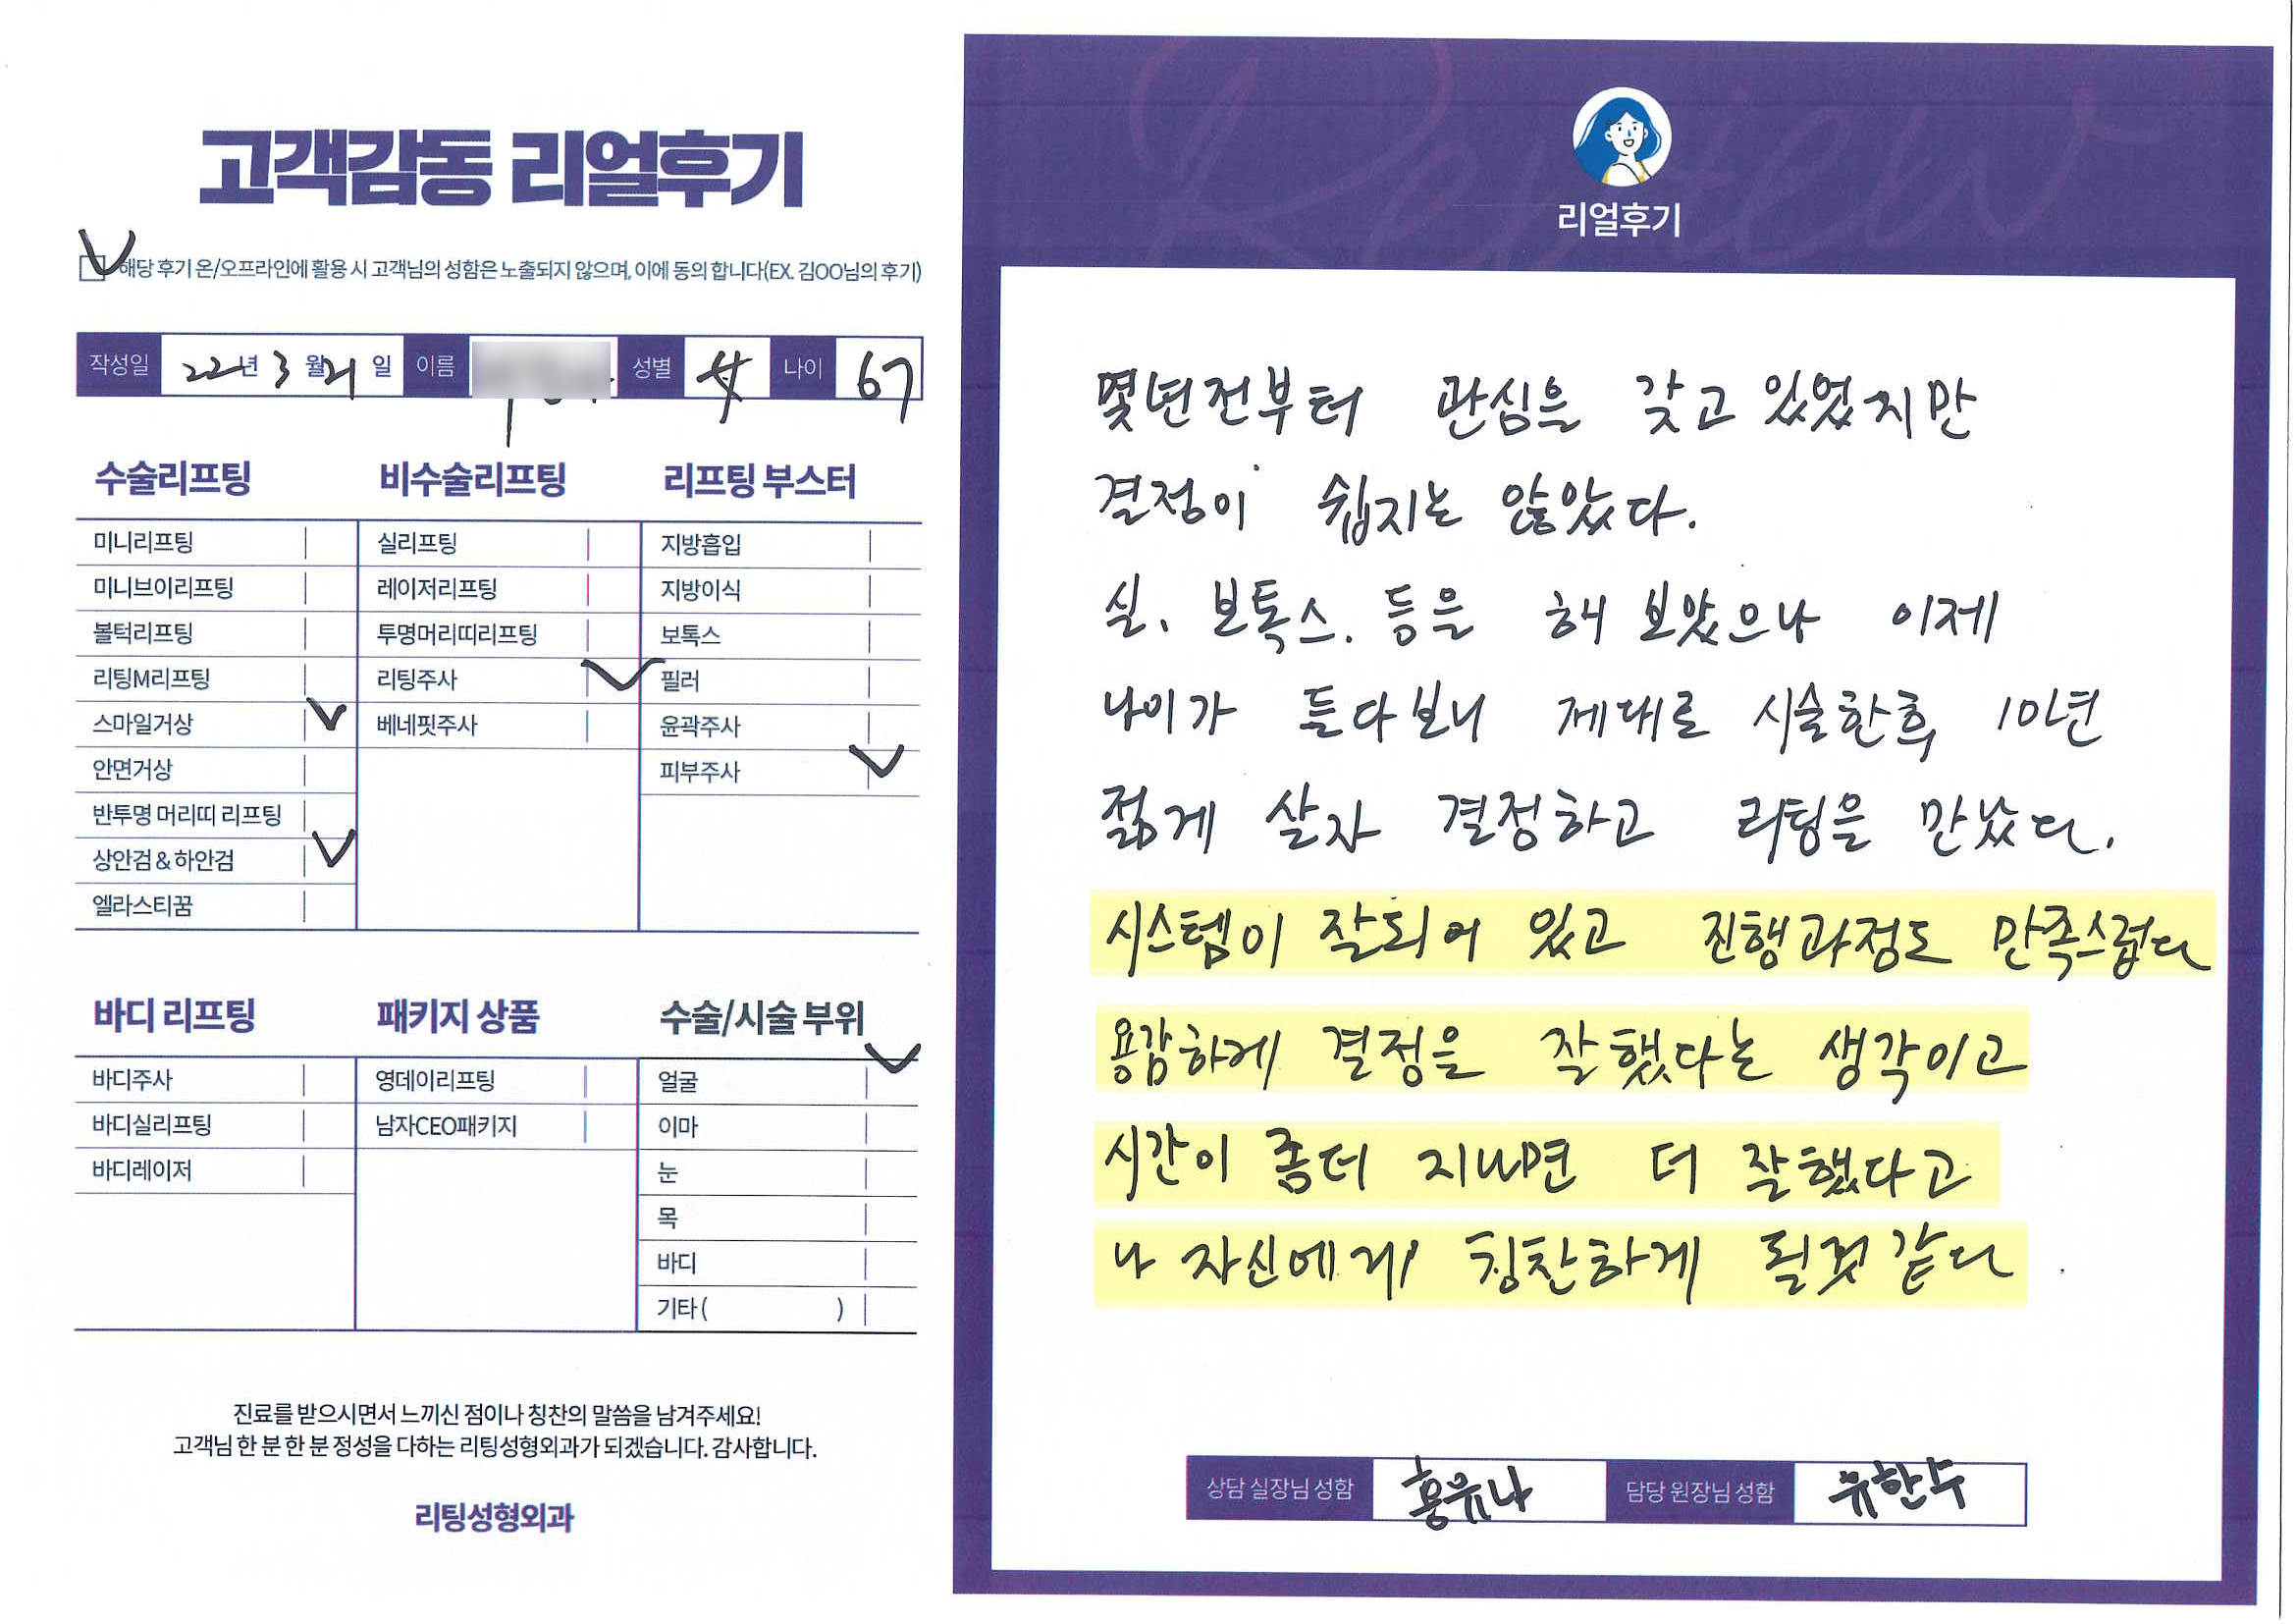 고객감동 리얼후기
해당 후기 온/오프라인에 활용 시 고객님의 성함은 노출되지 않으며, 이에 동의 합니다(EX. 김OO님의 후기)
작성일 22년 3월 21일 이름 성별 女 나이 67
수술리프팅
미니리프팅
미니브이리프팅
볼턱리프팅
리팅M리프팅
스마일거상
안면거상
반투명 머리띠 리프팅
상안검&하안검
엘라스티꿈
비수술리프팅
실리프팅
레이저리프팅
투명머리띠리프팅
리팅주사
베네핏주사
리프팅 부스터
지방흡입
지방이식
보톡스
필러
윤곽주사
피부주사
바디 리프팅
바디주사
바디실리프팅
바디레이저
패키지 상품
영데이리프팅
남자CEO패키지
수술/시술 부위
얼굴
이마
눈
목
바디
기타( )
진료를 받으시면서 느끼신 점이나 칭찬의 말씀을 남겨주세요!
고객님 한 분 한 분 정성을 다하는 리팅성형외과가 되겠습니다. 감사합니다.
리팅성형외과
Review
리얼후기
몇년전부터 관심을 갖고 있었지만
결정이 쉽지는 않았다.
실, 보톡스. 등을 해 보았으나 이제
나이가 들다보니 제대로 시술한후 10년
젊게 살자 결정하고 리팅을 만났다.
시스템이 잘되어 있고 진행과정도 만족스럽다
용감하게 결정을 잘했다는 생각이고
시간이 좀더 지나면 더 잘했다고
나 자신에게 칭찬하게 될것 같다.
상담 실장님 성함 홍유나 담당 원장님 성함 유한수